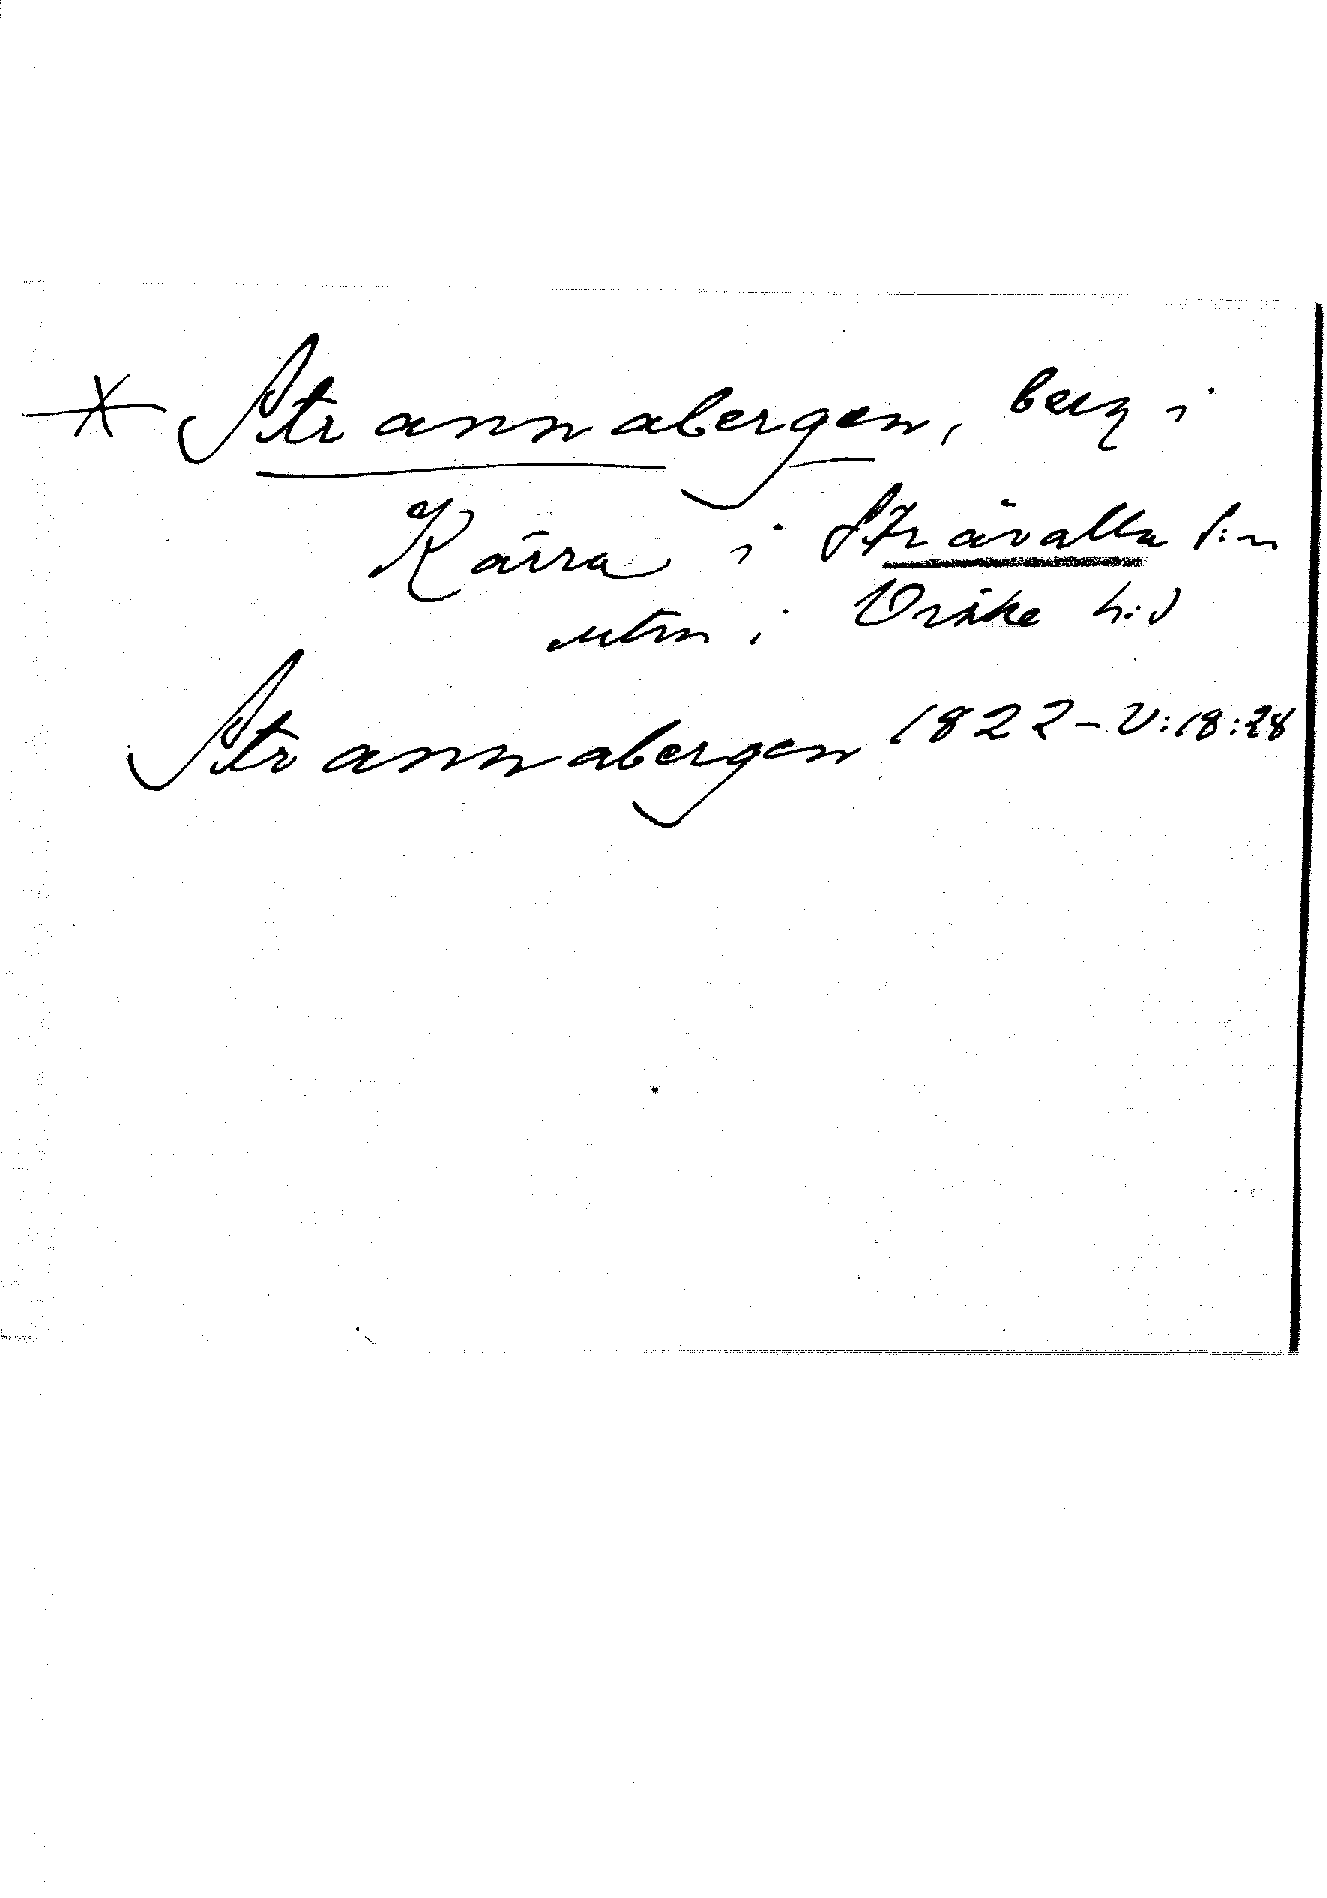 * Strannabergen, berg i
Kärra i Strävalla s:n
i Viske h:d
Strannabergen 1822 - V:18:28